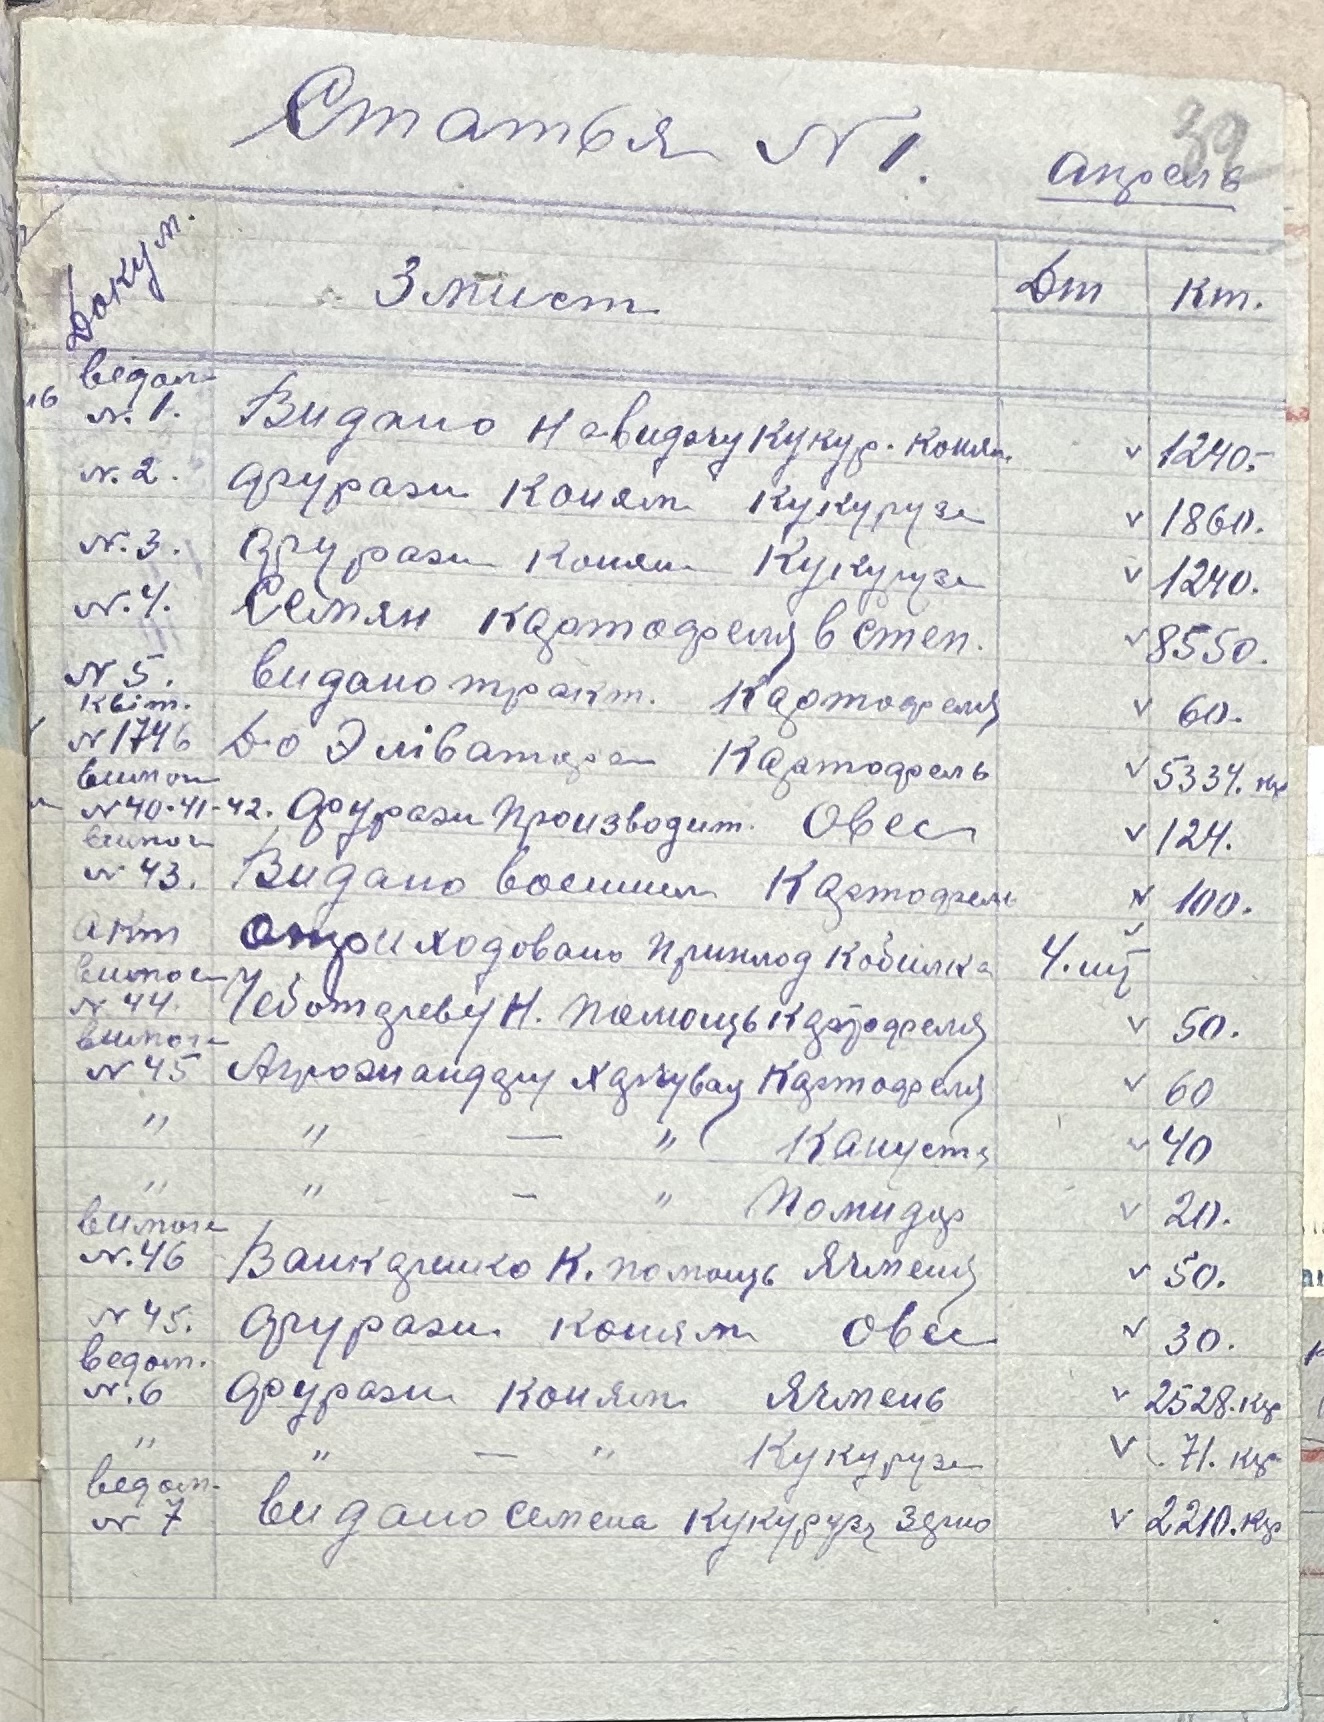 39
Статья N 1.
апрель
Докум.
Змист
Дт
Кт.
ведом
N. 1. Видано на видачу кукур. коням 1240.-
N. 2. фуражи коням кукурузи 1860.
N. 3. фуражи коням кукурузи 1240.
N. 4. Семян картофеля в степ. 8550.
N 5. видано тракт. картофеля 60.
квит.
N 1746 До Эліватора картофель 5334. кг
вимога
N 40-41-42. фуражи производит. овес 124.
вимога
N 43. Видано военим картофель 100.
акт оприходовано приплод кобилка 4. шт
вимога
N 44. Чеботареву Н. помощь картофеля 50.
вимога
N 45 Агрокандару харчував картофеля 60
" " — " капуста 40
" " - " помидор 20.
вимога
N. 46 К. помощь ячменя 50.
N 45. фуражи коням овес 30.
ведом.
N. 6 фуражи коням ячмень 2528. кг
" " — " кукурузи 71. кг
ведом.
N 7 видано семена кукуруз зерно 2210. кг